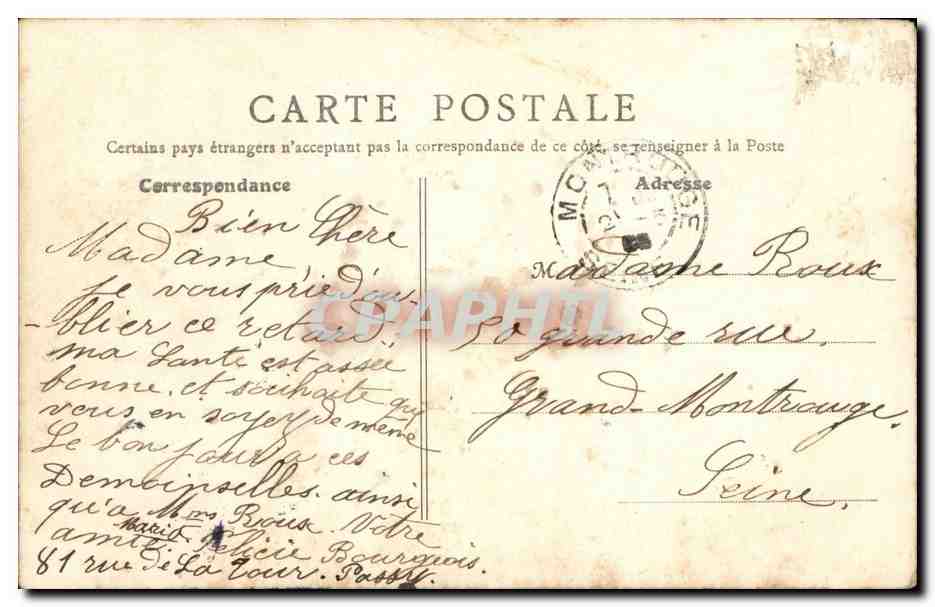 CARTE POSTALE
Certains pays étrangers n'acceptant pas la correspondance de ce côté, se renseigner à la Poste
Correspondance
Bien Chère
Madame,
Je vous prie d'ou-
-blier ce retard,
ma Santé est assée
bonne, et souhaite que
vous en soyez de même
Le bonjour a ces
Demoinselles. ainsi
qu'a Mrs Roux. Votre
amie Maria Félicie Bourgeois.
81 rue de La Tour. Passy.
Adresse
MONTROUGE
Madame Roux
50 grande rue.
Grand-Montrouge.
Seine.
CPAPHIL